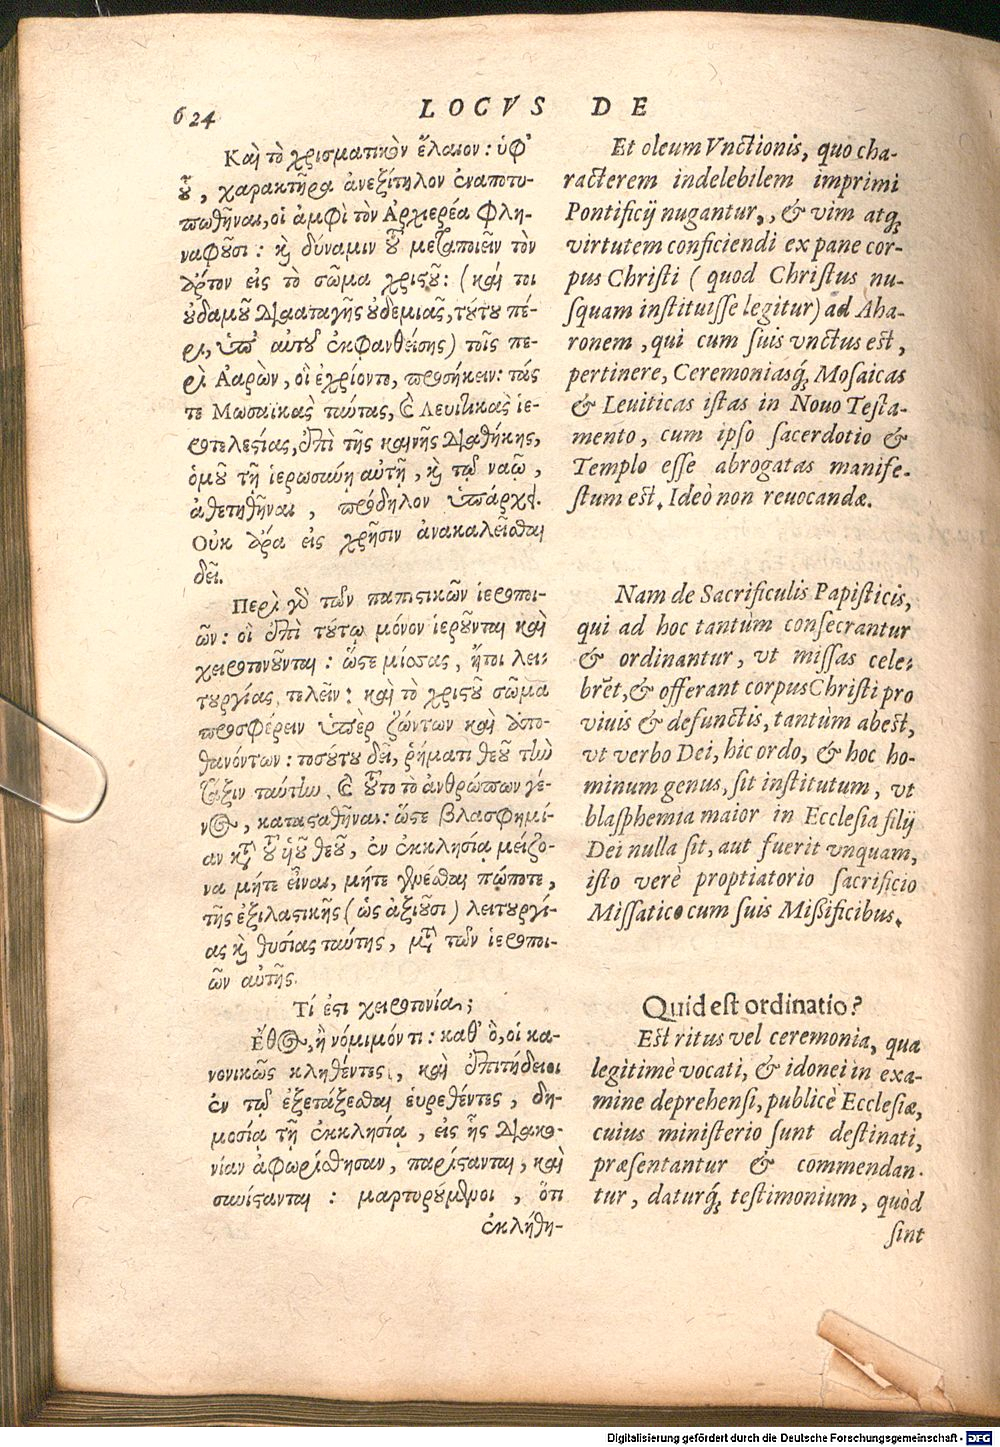 624
LOCVS DE
Καὶ τὸ χρισματικὸν ἔλαιον: ὑφ'
οὗ, χαρακτῆρα ἀνεξίτηλον ἐναποτυ-
πωθῆναι, οἱ ἀμφὶ τὸν Ἀρχιερέα φλη-
ναφοῦσι: καὶ δύναμιν τοῦ μεταποιεῖν τὸν
ἄρτον εἰς τὸ σῶμα χριστοῦ: (καί τοι
οὐδαμοῦ διαταγῆς οὐδεμιᾶς, τούτου πέ-
ρι, ὑπ' αὐτοῦ ἐκφανθείσης) τοῖς πε-
ρὶ Ἀαρὼν, οἳ ἐχρίοντο, προσήκειν: τάς
τε Μωσαϊκὰς πάντας, καὶ Λευιτικὰς ἱε-
ροτελεσίας, ἐπὶ τῆς καινῆς διαθήκης,
ὁμοῦ τῇ ἱερωσύνῃ αὐτῇ, καὶ τῷ ναῷ,
ἀθετηθῆναι, πρόδηλον ὑπάρχει.
Οὐκ ἄρα εἰς χρῆσιν ἀνακαλεῖσθαι
δεῖ.
Περὶ γὰρ τῶν παπιστικῶν ἱεροποι-
ῶν: οἳ ἐπὶ τούτῳ μόνον ἱεροῦνται καὶ
χειροτονοῦνται: ὥστε μίσσας, ἤτοι λει-
τουργίας τελεῖν: καὶ τὸ χριστοῦ σῶμα
προσφέρειν ὑπὲρ ζώντων καὶ ἀπο-
θανόντων: τοσούτου δεῖ, ῥήματι θεοῦ τὴν
τάξιν ταύτην, καὶ τοῦτο τὸ ἀνθρώπων γέ-
νος, κατασταθῆναι: ὥστε βλασφημί-
αν κατὰ τοῦ ὑιοῦ θεοῦ, ἐν ἐκκλησίᾳ μείζο-
να μήτε εἶναι, μήτε γενέσθαι πώποτε,
τῆς ἐξιλαστικῆς (ὡς ἀξιοῦσι) λειτουργί-
ας καὶ θυσίας ταύτης, μετὰ τῶν ἱεροποι-
ῶν αὐτῆς.
Τί ἐστι χειροτονία;
Ἔθος, ἢ νόμιμόν τι: καθ' ὃ, οἱ κα-
νονικῶς κληθέντες, καὶ ἐπιτήδειοι
ἐν τῷ ἐξετάζεσθαι εὑρεθέντες, δη-
μοσίᾳ τῇ ἐκκλησίᾳ, εἰς ἧς διακο-
νίαν ἀφωρίσθησαν, παρίστανται, καὶ
συνίστανται: μαρτυρούμενοι, ὅτι
ἐκλήθη-
Et oleum Vnctionis, quo cha-
racterem indelebilem imprimi
Pontificij nugantur, & vim atq;
virtutem conficiendi ex pane cor-
pus Christi ( quod Christus nu-
squam instituisse legitur) ad Aha-
ronem, qui cum suis vnctus est,
pertinere, Ceremoniasq́; Mosaicas
& Leuiticas istas in Nouo Testa-
mento, cum ipso sacerdotio &
Templo esse abrogatas manife-
stum est. Ideò non reuocandæ.
Nam de Sacrificulis Papisticis,
qui ad hoc tantùm consecrantur
& ordinantur, vt missas cele-
brẽt, & offerant corpus Christi pro
viuis & defunctis, tantùm abest,
vt verbo Dei, hic ordo, & hoc ho-
minum genus, sit institutum, vt
blasphemia maior in Ecclesia filij
Dei nulla sit, aut fuerit vnquam,
isto verè proptiatorio sacrificio
Missatico cum suis Missificibus.
Quid est ordinatio?
Est ritus vel ceremonia, qua
legitimè vocati, & idonei in exa-
mine deprehensi, publicè Ecclesiæ,
cuius ministerio sunt destinati,
præsentantur & commendan-
tur, daturq́; testimonium, quòd
sint
Digitalisierung gefördert durch die Deutsche Forschungsgemeinschaft - DFG